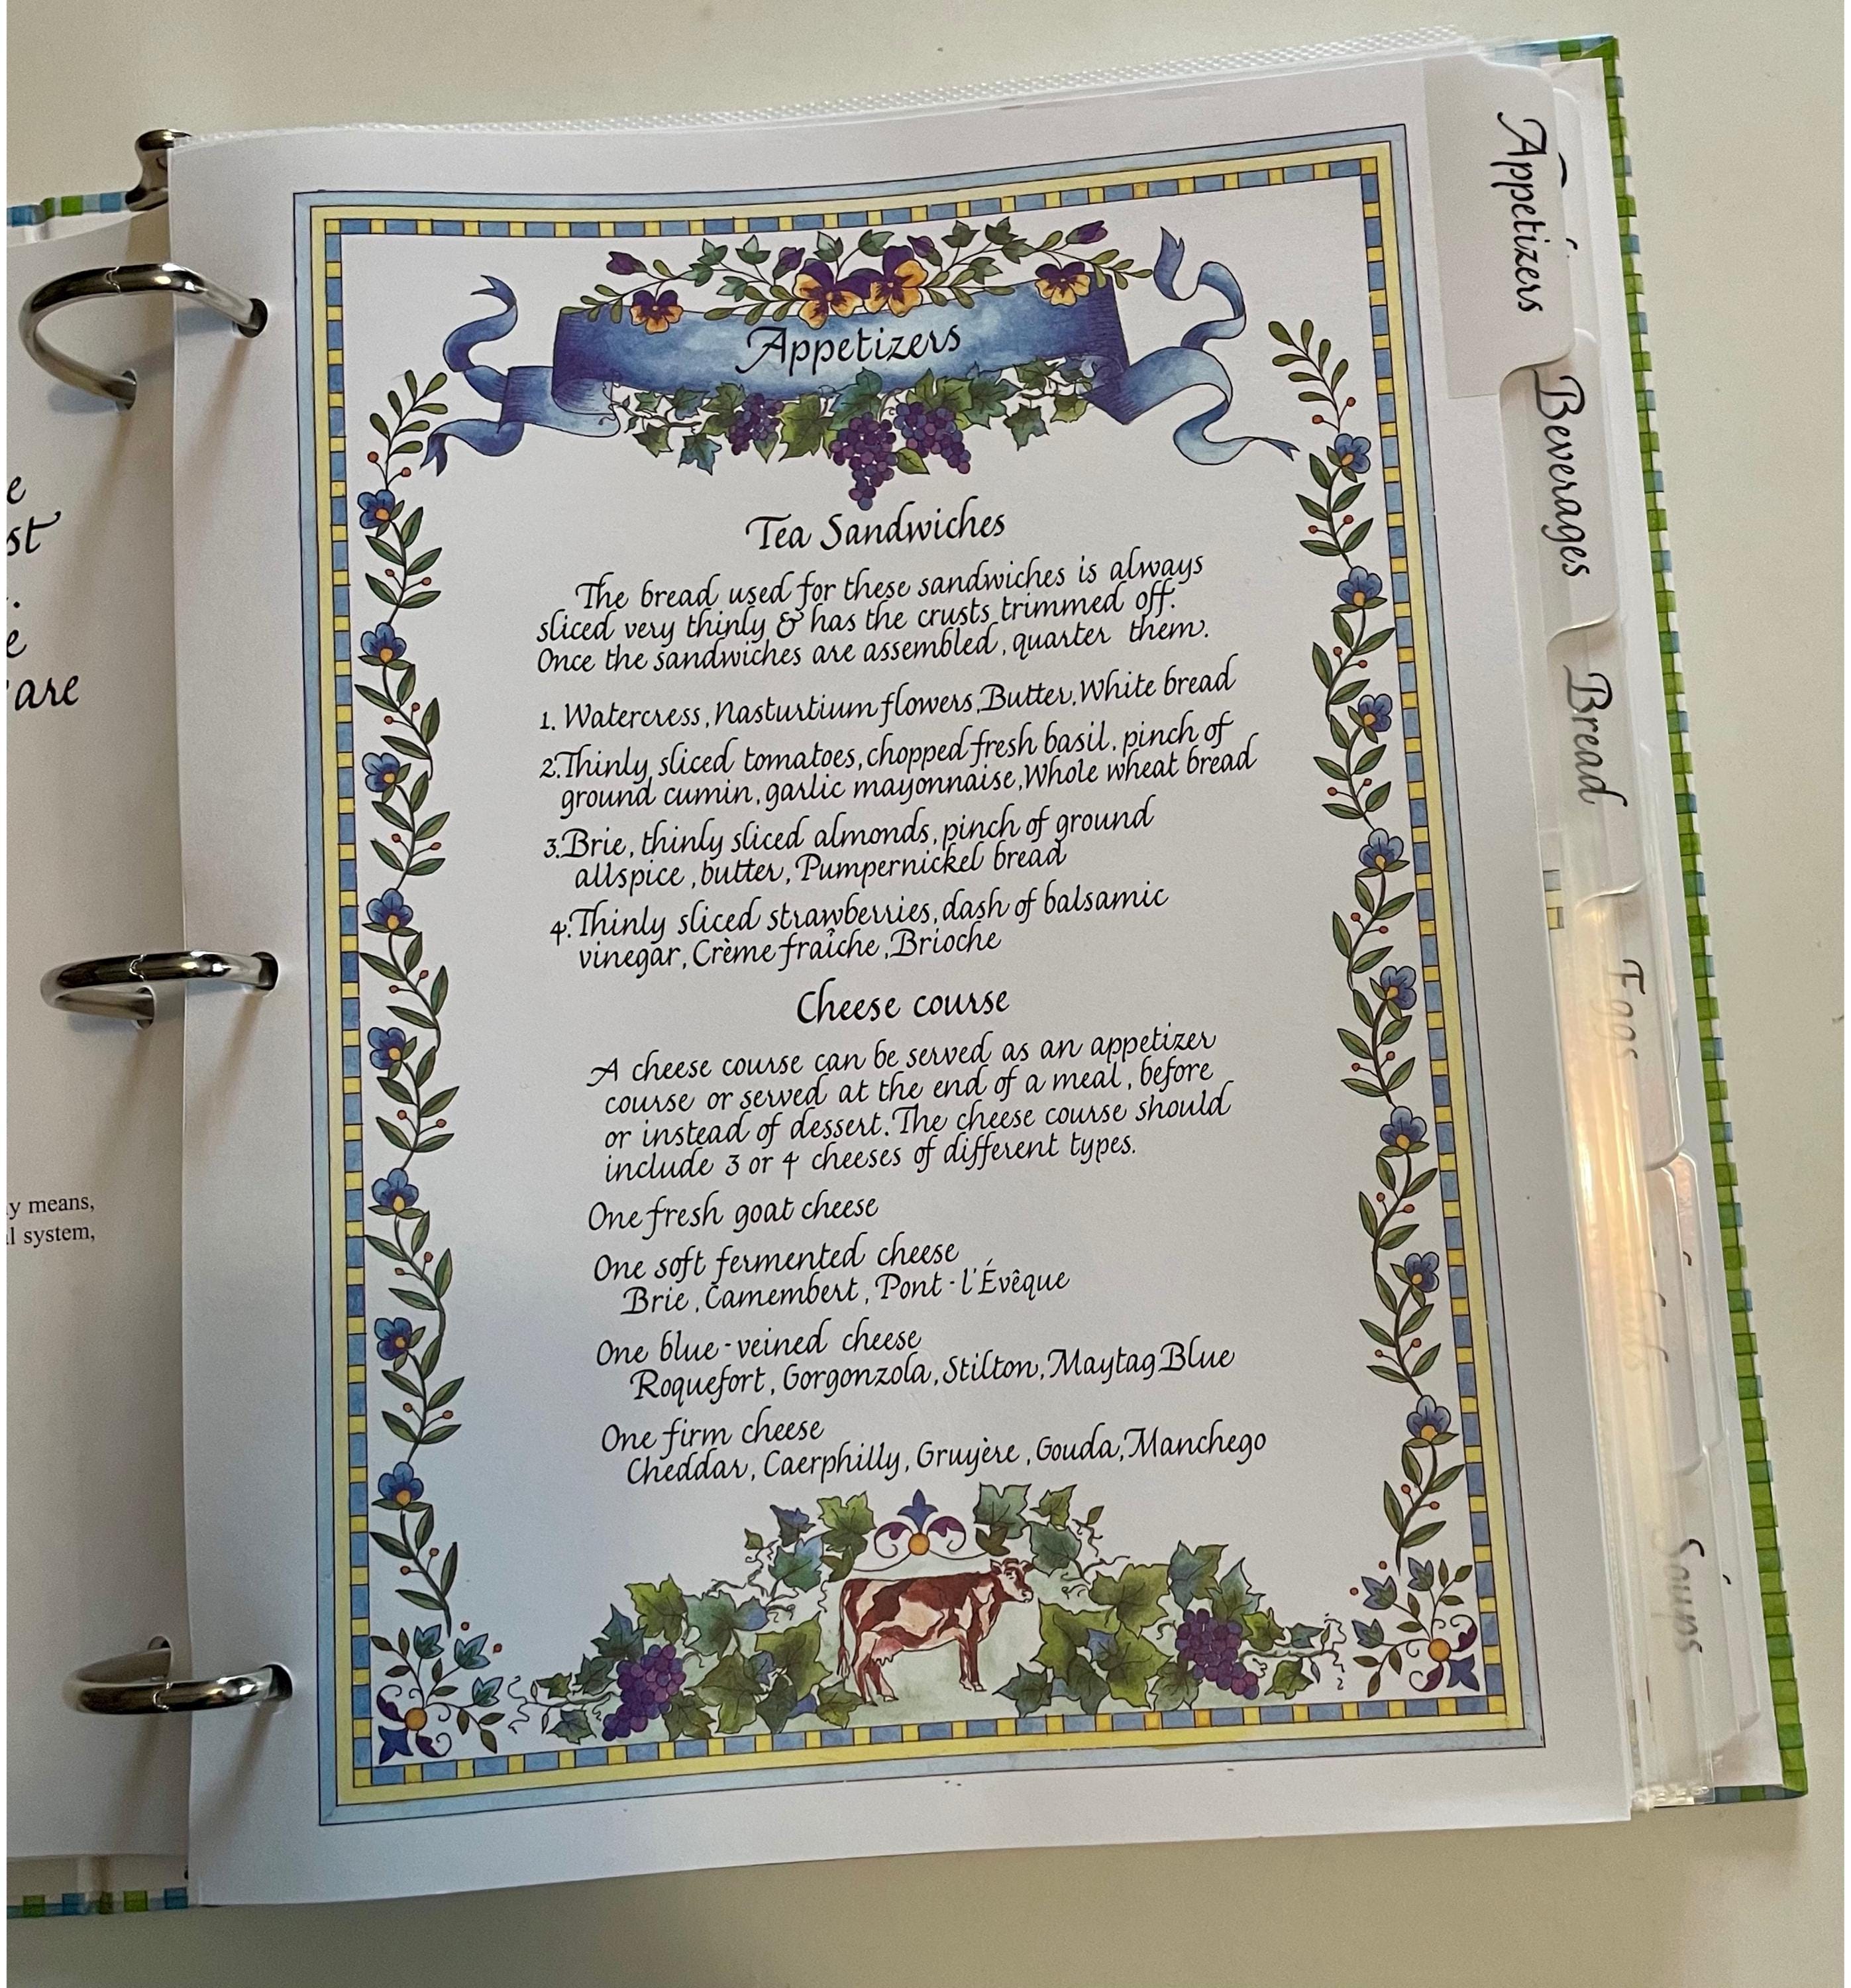 e
st
.
e
are
y means,
l system,
Appetizers
Tea Sandwiches
The bread used for these sandwiches is always
sliced very thinly & has the crusts trimmed off.
Once the sandwiches are assembled, quarter them.
1. Watercress, Nasturtium flowers, Butter, White bread
2. Thinly sliced tomatoes, chopped fresh basil, pinch of
ground cumin, garlic mayonnaise, Whole wheat bread
3. Brie, thinly sliced almonds, pinch of ground
allspice, butter, Pumpernickel bread
4. Thinly sliced strawberries, dash of balsamic
vinegar, Crème fraîche, Brioche
Cheese course
A cheese course can be served as an appetizer
course or served at the end of a meal, before
or instead of dessert. The cheese course should
include 3 or 4 cheeses of different types.
One fresh goat cheese
One soft fermented cheese
Brie, Camembert, Pont-l'Évêque
One blue-veined cheese
Roquefort, Gorgonzola, Stilton, Maytag Blue
One firm cheese
Cheddar, Caerphilly, Gruyère, Gouda, Manchego
Appetizers
Beverages
Bread
Eggs
Soups